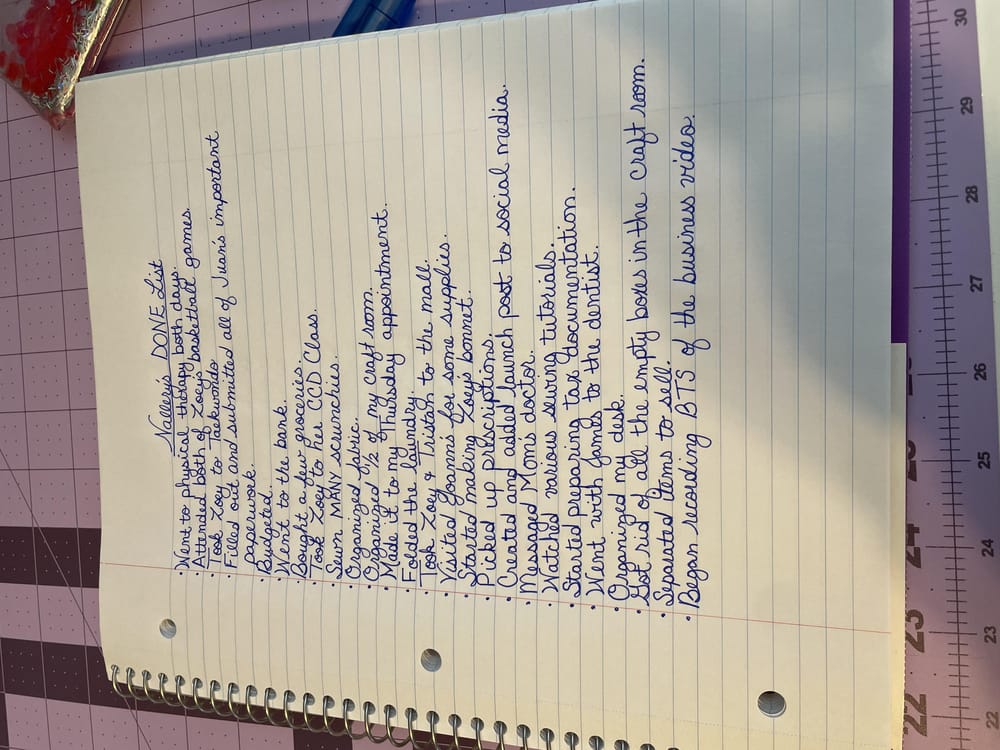 Nallery's DONE List
• Went to physical therapy both days.
• Attended both of Zoeys basketball games.
• Took Zoey to Taekwondo
• Filled out and submitted all of Juan's important
paperwork.
• Budgeted.
• Went to the bank.
• Bought a few groceries.
• Took Zoey to her CCD Class.
• Sewn MANY scrunchies.
• Organized fabric.
• Organized 1/2 of my craft room.
• Made it to my Thursday appointment.
• Folded the laundry.
• Took Zoey & Tristan to the mall.
• Visited Joanns for some supplies.
• Started making Zoeys bonnet.
• Picked up prescriptions.
• Created and added launch post to social media.
• Messaged Moms doctor.
• Watched various sewing tutorials.
• Started preparing tax documentation.
• Went with James to the dentist.
• Organized my desk.
• Got rid of all the empty boxes in the craft room.
• Separated items to sell.
• Began recording BTS of the business video.
22
23
24
25
26
22
23
24
25
26
27
28
29
30